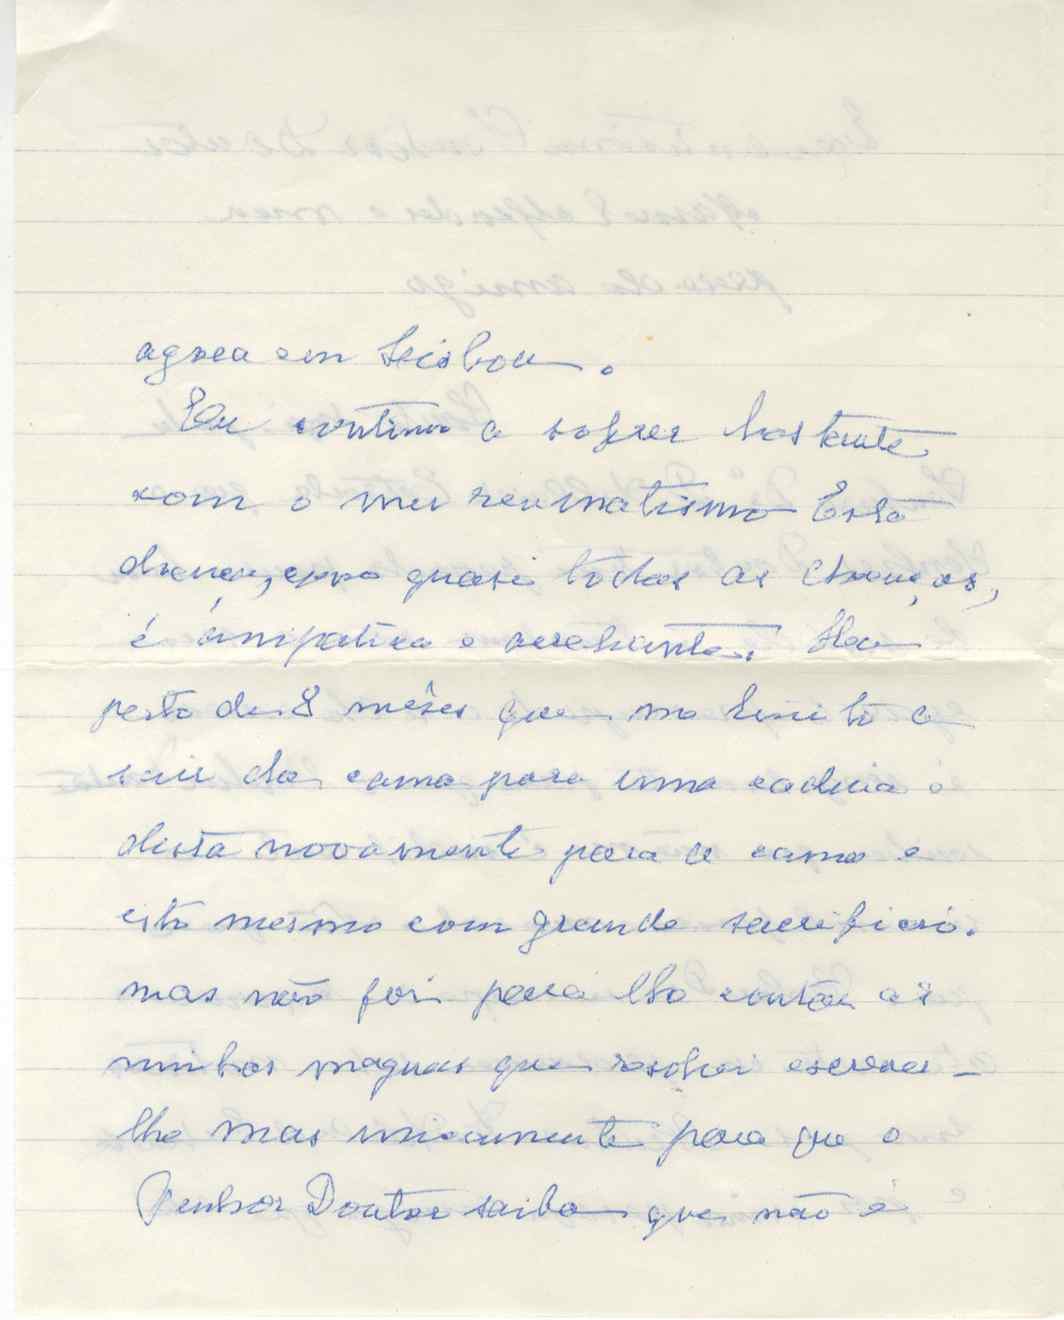 agora em Lisboa.
Eu continuo a sofrer bastante
com o meu reumatismo Esta
doença, como quasi todas as doenças,
é antipatica e arreliante. Ha
perto de 8 mêses que me limito a
sair da cama para uma cadeira e
desta novamente para a cama e
isto mesmo com grande sacrificio.
mas não foi para lhe contar as
minhas maguas que resolvi escrever-
lhe mas unicamente para que o
Senhor Doutor saiba que não é